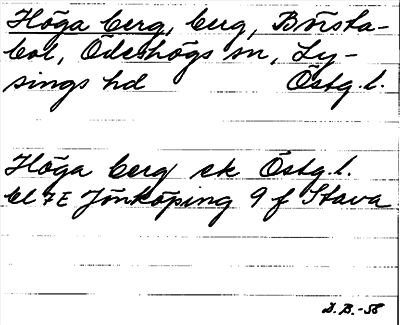 Höga berg, berg, Börsta-
bol, Ödeshögs sn, Ly-
sings hd Östg.l.
Höga berg ek Östg.l.
bl 7E Jönköping 9 f Stava
D.B.-58